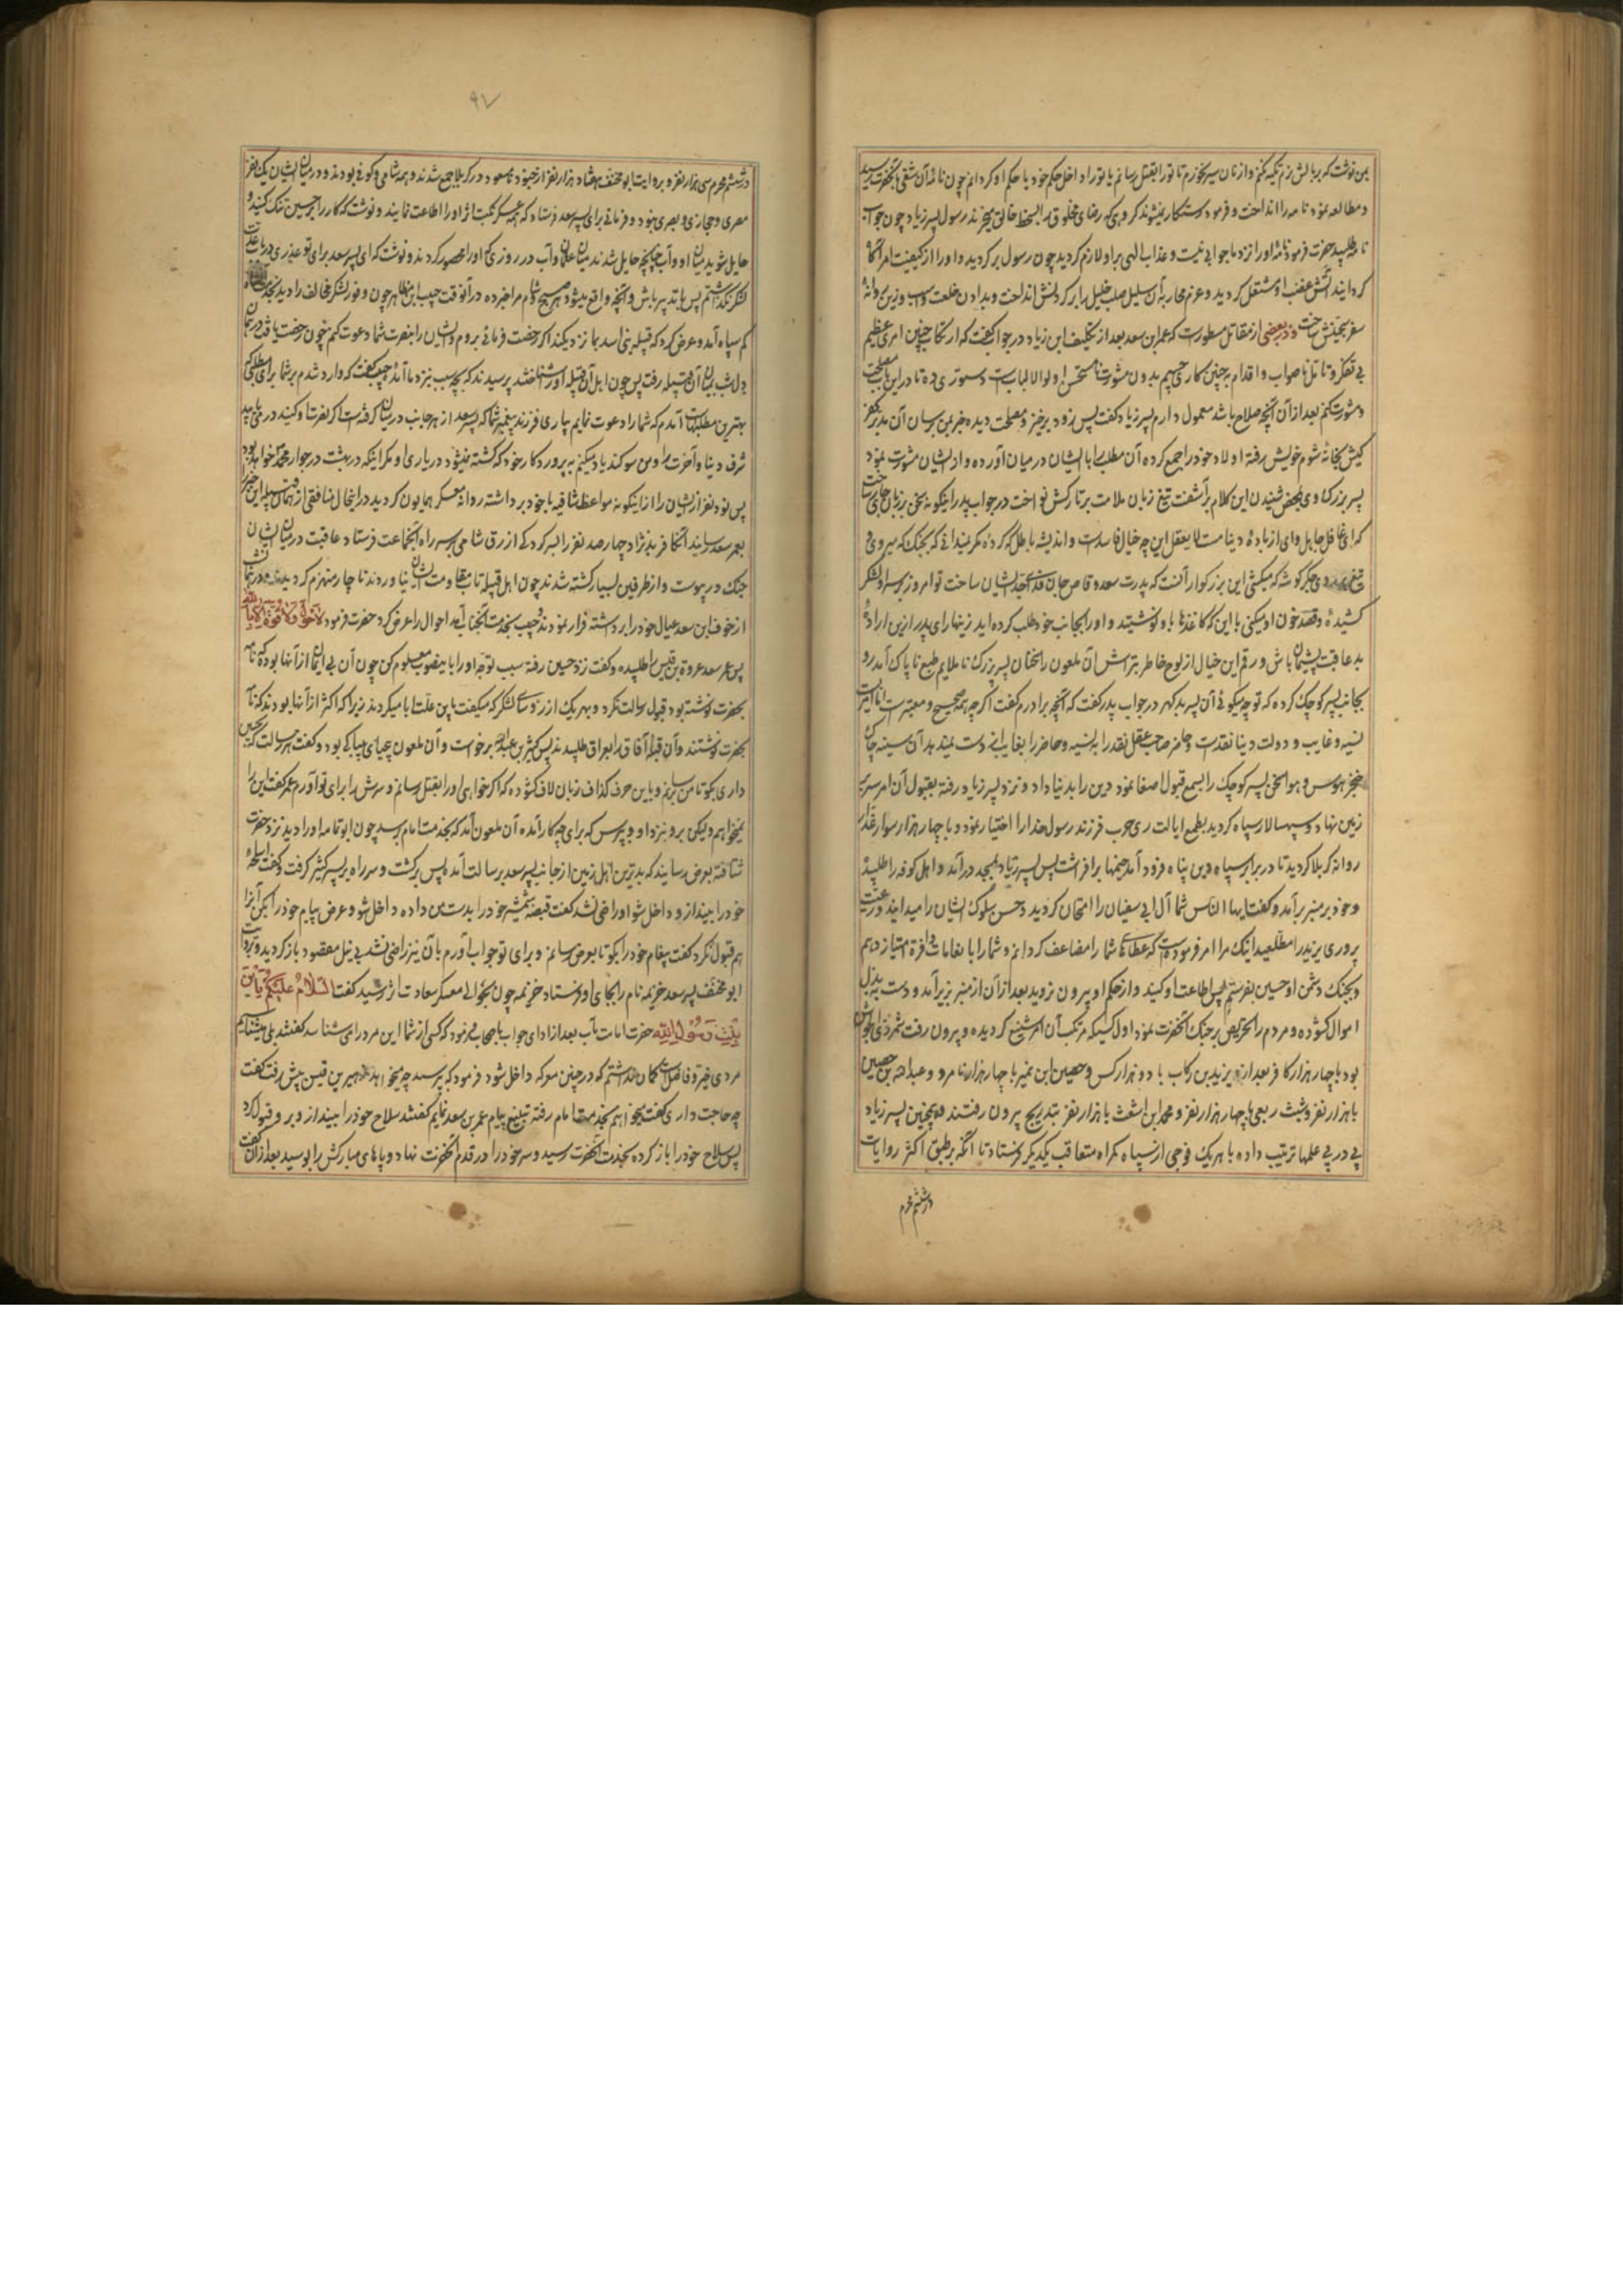 بمن نوشت که بر بالش نرم تکیه نکنم و از نان سیر نخورم تا تو را بقتل رسانم یا تو را داخل حکم خود یا حکم او کردانم چون نامهٔ آن شقی بآنحضرت رسید
و مطالعه نمود نامه را انداخت و فرمود رستکار نمیشوند کروهی که رضای مخلوق را بسخط خالق میخرند رسول پسر زیاد چون جواب
نامه طلبید حضرت فرمود نامهٔ او را نزد ما جوابی نیست و عذاب الهی بر او لازم کردید چون رسول برکردید و او را از کیفیت امر آگاه
کردانید آتش غضب او مشتعل کردید و عزم محاربه آن سلیل صلب خلیل را بر کردنش انداخت و بدادن خلعت و اسب و زین روانهٔ
سفر ساخت و در بعضی از مقاتل مسطورست که عمر ابن سعد بعد از تکلیف ابن زیاد در جواب گفت که ارتکاب چنین امری عظیم
بی تفکر و تأمل ناصواب و اقدام بچنین کاری جسیم بدون مشورت نامستحسن اولوالالباب است دستوری ده تا در این باب مصلحت
و مشورت کنم بعد از آن آنچه صلاح باشد معمول دارم پسر زیاد گفت پس زود برخیز و مصلحت دیده خبر بمن برسان آن بدتر کفر
کیش بخانهٔ شوم خویش رفته اولاد خود را جمع کرده آن مطلب را با ایشان در میان آورده و از ایشان مشورت نمود
پسر بزرک او بمحض شنیدن این کلام برآشفت تیغ زبان ملامت بر تارکش نواخت در جواب پدر اینکونه سخن بر زبان جاری ساخت
که ای غافل جاهل و ای از بادهٔ دنیا مست لا یعقل این چه خیال فاسدست و اندیشه باطل که کردهٔ مکر نمیدانی که بجنک که میروی و
تیغ بر روی جکر کوشه که میکشی این بزرکوار آنست که پدرت سعد وقاص جان فدای جد ایشان ساخت تو امروز بر سر او لشکر
کشیدهٔ و قصد خون او میکنی با این که کاغذها باو نوشتید و او را بجانب خود طلب کرده اید زینهار ای پدر ازین ارادهٔ
بد عاقبت پشیمان باش و رقم این خیال از لوح خاطر بتراش آن ملعون را سخنان پسر بزرک ناملایم طبع ناپاک آمد رو
بجانب پسر کوچک کرده که تو چه میکوئی آن پسر بدکهر در جواب پدر گفت که آنچه برادرم گفت اکرچه همه صحیح و معتبرست اما آخرت
نسیه و غایب و دولت دنیا نقدست و حاضر صاحب عقل نقد را به نسیه و حاضر را بغایب از دست نمیدهد آن سینه چاک
خنجر هوس و هوا سخن پسر کوچک را بسمع قبول اصغا نمود دین را بدنیا داد و نزد پسر زیاد رفته بقبول آن امر سر بر
زمین نهاد و سپهسالار سپاه کردید بطمع ایالت ری حرب فرزند رسول خدا را اختیار نمود و با چهار هزار سوار غدار
روانه کربلا کردید تا در برابر سپاه دین پناه فرود آمد خیمها برافراشت پس پسر زیاد بمسجد درآمد و اهل کوفه را طلبید
و خود بر منبر برآمد و گفت ایها الناس شما آل ابی سفیان را امتحان کردید و حسن سلوک ایشان را میدانید و رعیت
پروری یزید را مطلعید اینک مرا امر فرموده است که عطاهای شما را مضاعف کردانم و شما را بانعامات وافره امتیاز دهم
و بجنک دشمن او حسین بفرستم پس اطاعت او کنید و از حکم او بیرون نروید بعد از آن از منبر بزیر آمد و دست به بذل
اموال کشوده و مردم را تحریص بر جنک آنحضرت نمود اول کسیکه مرتکب آن امر شنیع کردیده و بیرون رفت شمر ذی الجوشن
بود با چهار هزار کافر بعد از او یزید بن رکاب با دو هزار کس و حصین ابن نمیر با چهار هزار نامرد و عبدالله بن حصین
با هزار نفر و شبث ربعی با چهار هزار نفر و محمد ابن اشعث با هزار نفر بتدریج بیرون رفتند همچنین پسر زیاد
پی در پی علمها ترتیب داده با هر یک فوجی از سپاه کمراه متعاقب یکدیکر فرستاد تا آنکه بر طبق اکثر روایات
در ششم محرم
۹۷
در ششم محرم سی هزار نفر و بروایت ابومخنف هشتاد هزار نفر از جنود نامسعود در کربلا جمع شدند و همه شامی و کوفی بودند و در میان ایشان یک نفر
مصری و حجازی و بصری نبود و فرمانی برای پسر سعد فرستاد که همه عسکر نکبت اثر او را اطاعت نمایند و نوشت که کار را بر حسین تنک کنید و
حایل شوید میان او و آب چنانچه حایل شدند میان عثمان و آب در روزی که او را محصور کردند و نوشت که ای پسر سعد برای تو عذری در باب قلت
لشکر نکذاشتم پس باید پر باش و آنچه واقع میشود هر صبح و شام مرا خبر ده در آنوقت حبیب ابن مظاهر چون وفور لشکر مخالف را دید بخدمت شاه
کم سپاه آمد و عرض کرد که قبیله بنی اسد بما نزدیکند اکر رخصت فرمائی بروم و ایشان را بنصرت شما دعوت کنم چون رخصت یافت در همان
دل شب بمیان آن قبیله رفت پس چون اهل آن قبیله او را شناختند پرسیدند که بچه سبب بنزد ما آمدهٔ حبیب گفت که وارد شدم بر شما برای مطلبی که
بهترین مطلبهاست آمدم که شما را دعوت نمایم بیاری فرزند پیغمبر شما که پسر سعد از هر جانب در میان کرفته است اکر نصرت او کنید در می یابید
شرف دنیا و آخرت را و من سوکند یاد میکنم به پروردکار خود که کشته نمیشود در یاری او مکر اینکه در بهشت در جوار محمد خواهد بود
پس نود نفر از ایشان را از اینکونه مواعظ شافیه با خود برداشته روانه معسکر همایون کردید در انحال منافقی از همان قبیله این خبر
بعمر سعد رسانید آنکافر بدنژاد چهار صد نفر را بسرکردکی ازرق شامی بر سر راه آنجماعت فرستاد عاقبت در میان ایشان
جنک در پیوست و از طرفین بسیار کشته شدند چون اهل قبیله تاب مقاومت ایشان نیاوردند ناچار منهزم کردیدند در همان شب
از خوف ابن سعد عیال خود را برداشته فرار نمودند و حبیب بخدمت آنجناب آمد احوال را عرض کرد حضرت فرمود لا حول ولا قوة الا بالله
پس عمر سعد عروة بن قیس را طلبیده و گفت نزد حسین رفته سبب توجه او را باینصوب معلوم کن چون آن بی ایمان از آنها بود که نامه
بحضرت نوشته بود قبول رسالت نکرد و بهر یک از رؤسای لشکر که میکفت باین علت ابا میکردند زیرا که اکثر از آنها بودند که نامه
بحضرت نوشتند و آن قبلهٔ آفاق را بعراق طلبیدند پس کثیر بن عبدالله برخواست و آن ملعون بیحیای بیباکی بود و گفت هر رسالت که بحسین
داری بکو تا من برسانم و باین حرف کذاف زبان لاف کشوده که اکر خواهی او را بقتل رسانم و سرش را برای تو آورم عمر گفت این را
نمیخواهم ولیکن برو نزد او و بپرس که برای چه کار آمده آن ملعون آمد که بخدمت امام برسد چون ابوثمامه او را دید نزد حضرت
شتافته بعرض رسانید که بدترین اهل زمین از جانب پسر سعد برسالت آمده پس برکشت و سر راه بر پسر کثیر کرفت و گفت اسلحه
خود را بینداز و داخل شو او راضی نشد گفت قبضه شمشیر خود را بدست من داده داخل شو و عرض پیام خود را بکن آنرا
هم قبول نکرد گفت پیغام خود را بکو تا بعرض رسانم و برای تو جواب آورم بآن نیز راضی نشد بی نیل مقصود باز کردید و بروایت
ابو مخنف پسر سعد خزیمه نام را بجای او فرستاد خزیمه چون بحوالی معسکر سعادت اثر رسید گفت السلام علیکم یا ابن
بنت رسول الله حضرت امامت مآب بعد از ادای جواب باصحاب فرمود که کسی از شما این مرد را میشناسد گفتند بلی میشناسیم
مردی خیر و فاضل است کمان نداشتم که در چنین معرکه داخل شود فرمود که بپرسید چه میخواهد زهیر بن قین پیش رفت گفت
چه حاجت داری گفت میخواهم بخدمت امام رفته تبلیغ پیام عمر بن سعد نمایم گفتند سلاح خود را بینداز و برو قبول کرد
پس سلاح خود را باز کرده بخدمت آنحضرت رسید و سر خود را در قدم آنحضرت نهاد و پاهای مبارکش را بوسید بعد از آن گفت